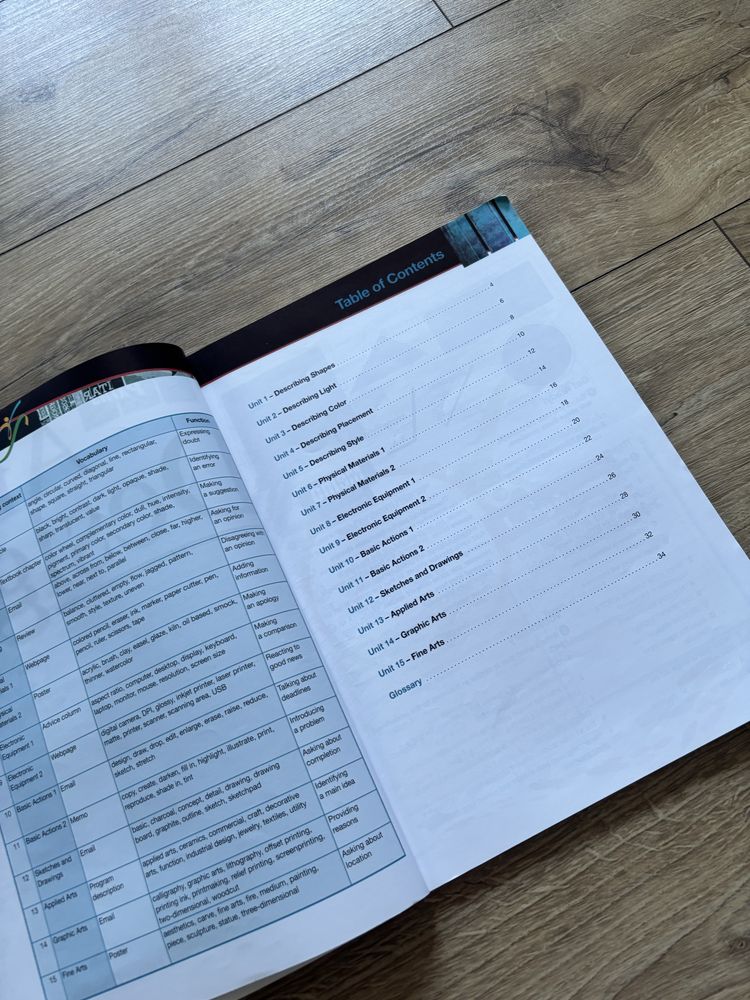 context
Vocabulary
Function
angle, circular, curved, diagonal, line, rectangular,
shape, square, straight, triangular
Expressing
doubt
black, bright, contrast, dark, light, opaque, shade,
sharp, translucent, value
Identifying
an error
Textbook chapter
color wheel, complementary color, dull, hue, intensity,
pigment, primary color, secondary color, shade,
spectrum, vibrant
Making
a suggestion
Email
above, across from, below, between, close, far, higher,
lower, near, next to, parallel
Asking for
an opinion
Review
balance, cluttered, empty, flow, jagged, pattern,
smooth, style, texture, uneven
Disagreeing with
an opinion
Webpage
colored pencil, eraser, ink, marker, paper cutter, pen,
pencil, ruler, scissors, tape
Adding
information
Poster
acrylic, brush, clay, easel, glaze, kiln, oil based, smock,
thinner, watercolor
Making
an apology
Electronic
Equipment 1
Advice column
aspect ratio, computer, desktop, display, keyboard,
laptop, monitor, mouse, resolution, screen size
Making
a comparison
9
Electronic
Equipment 2
Webpage
digital camera, DPI, glossy, inkjet printer, laser printer,
matte, printer, scanner, scanning area, USB
Reacting to
good news
10
Basic Actions 1
Email
design, draw, drop, edit, enlarge, erase, raise, reduce,
sketch, stretch
Talking about
deadlines
11
Basic Actions 2
Memo
copy, create, darken, fill in, highlight, illustrate, print,
reproduce, shade in, tint
Introducing
a problem
12
Sketches and
Drawings
Email
basic, charcoal, concept, detail, drawing, drawing
board, graphite, outline, sketch, sketchpad
Asking about
completion
13
Applied Arts
Program
description
applied arts, ceramics, commercial, craft, decorative
arts, function, industrial design, jewelry, textiles, utility
Identifying
a main idea
14
Graphic Arts
Email
calligraphy, graphic arts, lithography, offset printing,
printing ink, printmaking, relief printing, screenprinting,
two-dimensional, woodcut
Providing
reasons
15
Fine Arts
Poster
aesthetics, carve, fine arts, fire, medium, painting,
piece, sculpture, statue, three-dimensional
Asking about
location
Table of Contents
Unit 1 – Describing Shapes 4
Unit 2 – Describing Light 6
Unit 3 – Describing Color 8
Unit 4 – Describing Placement 10
Unit 5 – Describing Style 12
Unit 6 – Physical Materials 1 14
Unit 7 – Physical Materials 2 16
Unit 8 – Electronic Equipment 1 18
Unit 9 – Electronic Equipment 2 20
Unit 10 – Basic Actions 1 22
Unit 11 – Basic Actions 2 24
Unit 12 – Sketches and Drawings 26
Unit 13 – Applied Arts 28
Unit 14 – Graphic Arts 30
Unit 15 – Fine Arts 32
Glossary 34